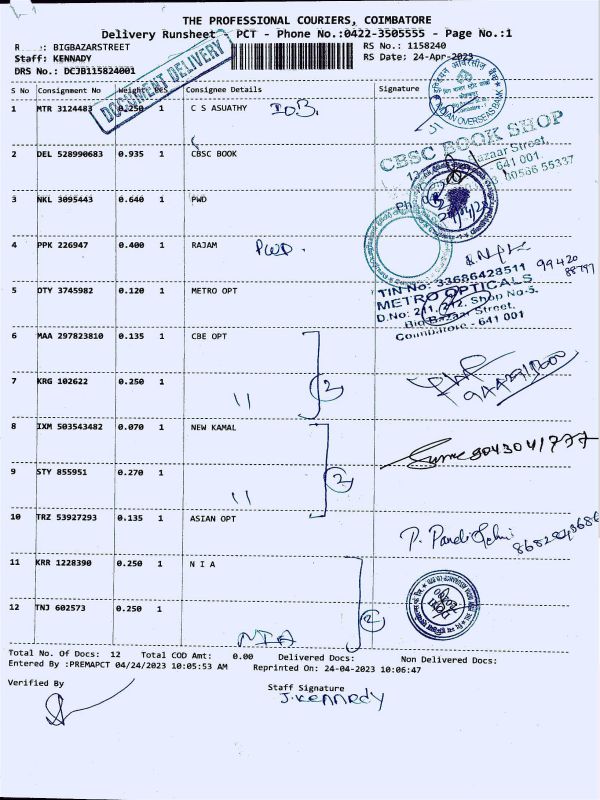 THE PROFESSIONAL COURIERS, COIMBATORE
Delivery Runsheet - PCT - Phone No.:0422-3505555 - Page No.:1
BIGBAZARSTREET
RS No.: 1158240
Staff: KENNADY
RS Date: 24-Apr-2023
DRS No.: DCJB115824001
DOCUMENT DELIVERY
S No Consignment No Weight PCS Consignee Details Signature
1 MTR 3124483 0.250 1 C S ASUATHY I.O.B.
INDIAN OVERSEAS BANK
2 DEL 528990683 0.935 1 CBSC BOOK
CBSC BOOK SHOP
Bazaar Street,
- 641 001
3 NKL 3095443 0.640 1 PWD
4 PPK 226947 0.400 1 RAJAM PWD.
5 DTY 3745982 0.120 1 METRO OPT
99420
88797
TIN No: 33686428511
METRO OPTICALS
D.No: 211, 212, Shop No-5.
Big Bazaar Street,
Coimbatore - 641 001
6 MAA 297823810 0.135 1 CBE OPT
7 KRG 102622 0.250 1 " 2
8 IXM 503543482 0.070 1 NEW KAMAL
9043041777
9 STY 855951 0.270 1 " 2
10 TRZ 53927293 0.135 1 ASIAN OPT
11 KRR 1228390 0.250 1 N I A
12 TNJ 602573 0.250 1 2
NIA
Total No. Of Docs: 12 Total COD Amt: 0.00 Delivered Docs: Non Delivered Docs:
Entered By :PREMAPCT 04/24/2023 10:05:53 AM Reprinted On: 24-04-2023 10:06:47
Verified By
Staff Signature
J. Kennedy